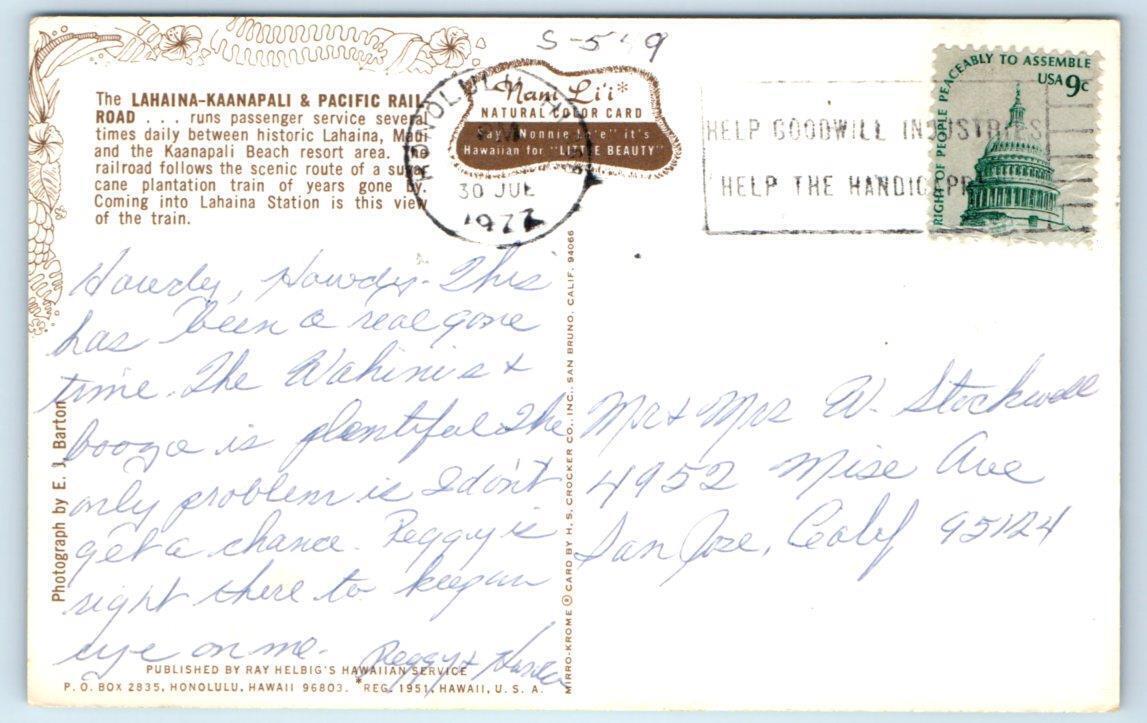 S-5 9
The LAHAINA-KAANAPALI & PACIFIC RAIL
ROAD . . . runs passenger service several
times daily between historic Lahaina, Maui
and the Kaanapali Beach resort area. The
railroad follows the scenic route of a sugar
cane plantation train of years gone by.
Coming into Lahaina Station is this view
of the train.
Nani Li'i*
NATURAL COLOR CARD
Say "Nonnie Le'e" it's
Hawaiian for "LITTLE BEAUTY"
HONOLULU, HI
30 JUL
HELP GOODWILL INDUSTRIES
HELP THE HANDICAPPED
RIGHT OF PEOPLE PEACEABLY TO ASSEMBLE
USA 9c
Howdy, Howdy. This
has been a real gone
time. The Wahinis +
booze is plentiful The
only problem is I don't
get a chance. Peggy is
right there to keep an
eye on me.
Peggy +
Mr + Mrs W. Stockwell
4952 Mise Ave
San Jose, Calif 95124
Photograph by E. J. Barton
MIRRO-KROME ® CARD BY H. S. CROCKER CO., INC., SAN BRUNO, CALIF. 94066
PUBLISHED BY RAY HELBIG'S HAWAIIAN SERVICE
P. O. BOX 2835, HONOLULU, HAWAII 96803. *REG. 1951, HAWAII, U. S. A.